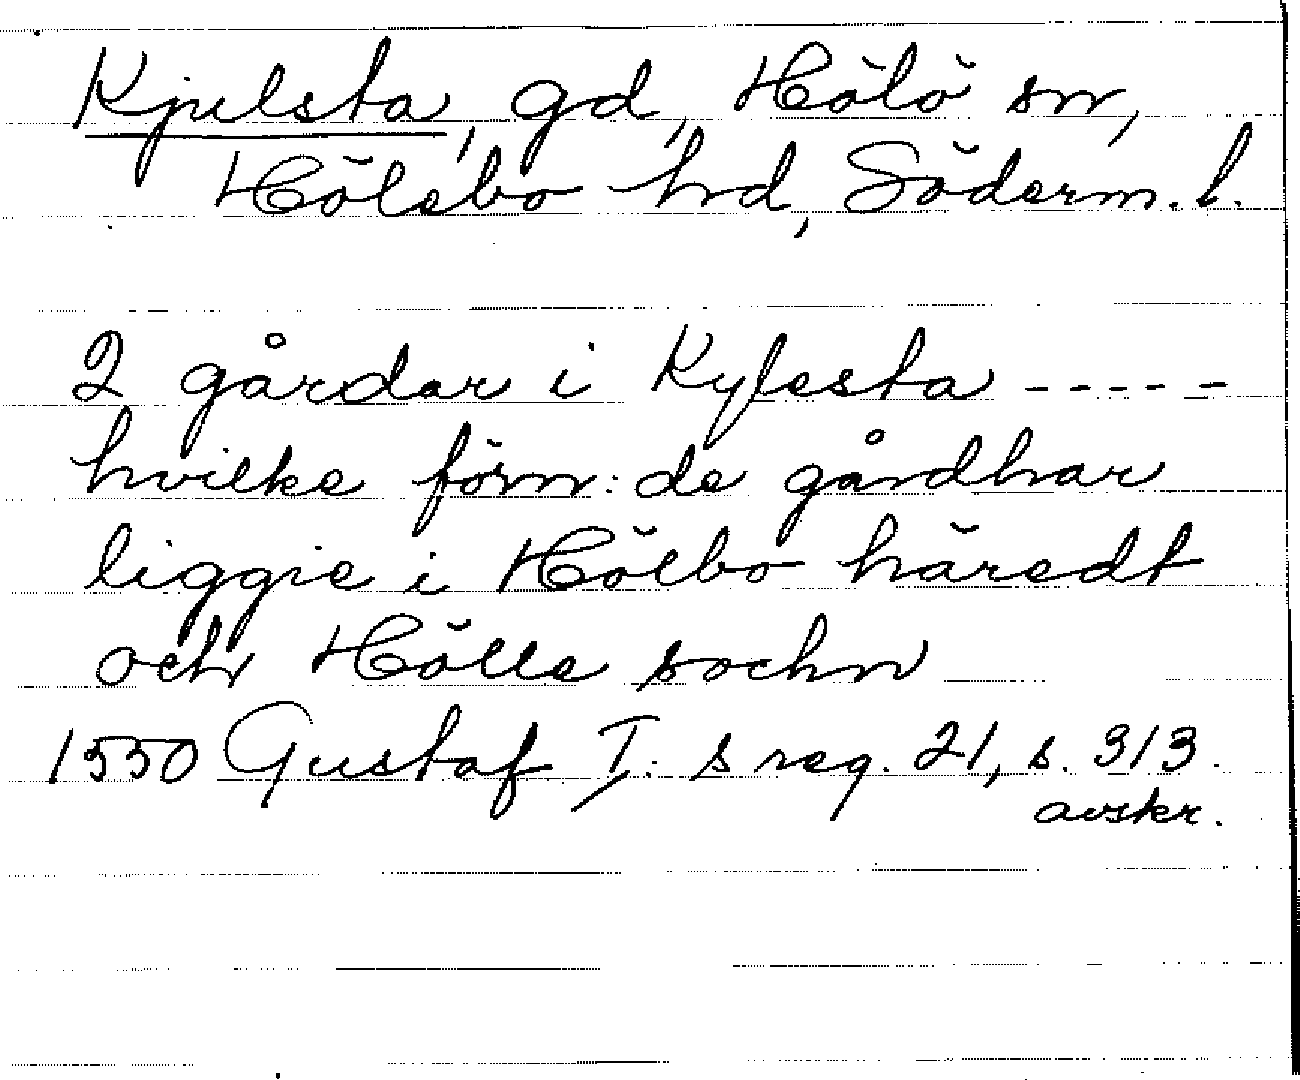 Kjulsta, gd, Hölö sn,
Hölebo hd, Söderm. l.
2 gårdar i Kylesta -----
hvilke förn: de gårdhar
liggie i Hölbo häredt
och Hölle sochn
1550 Gustaf I: s reg. 21, s. 313.
avskr.